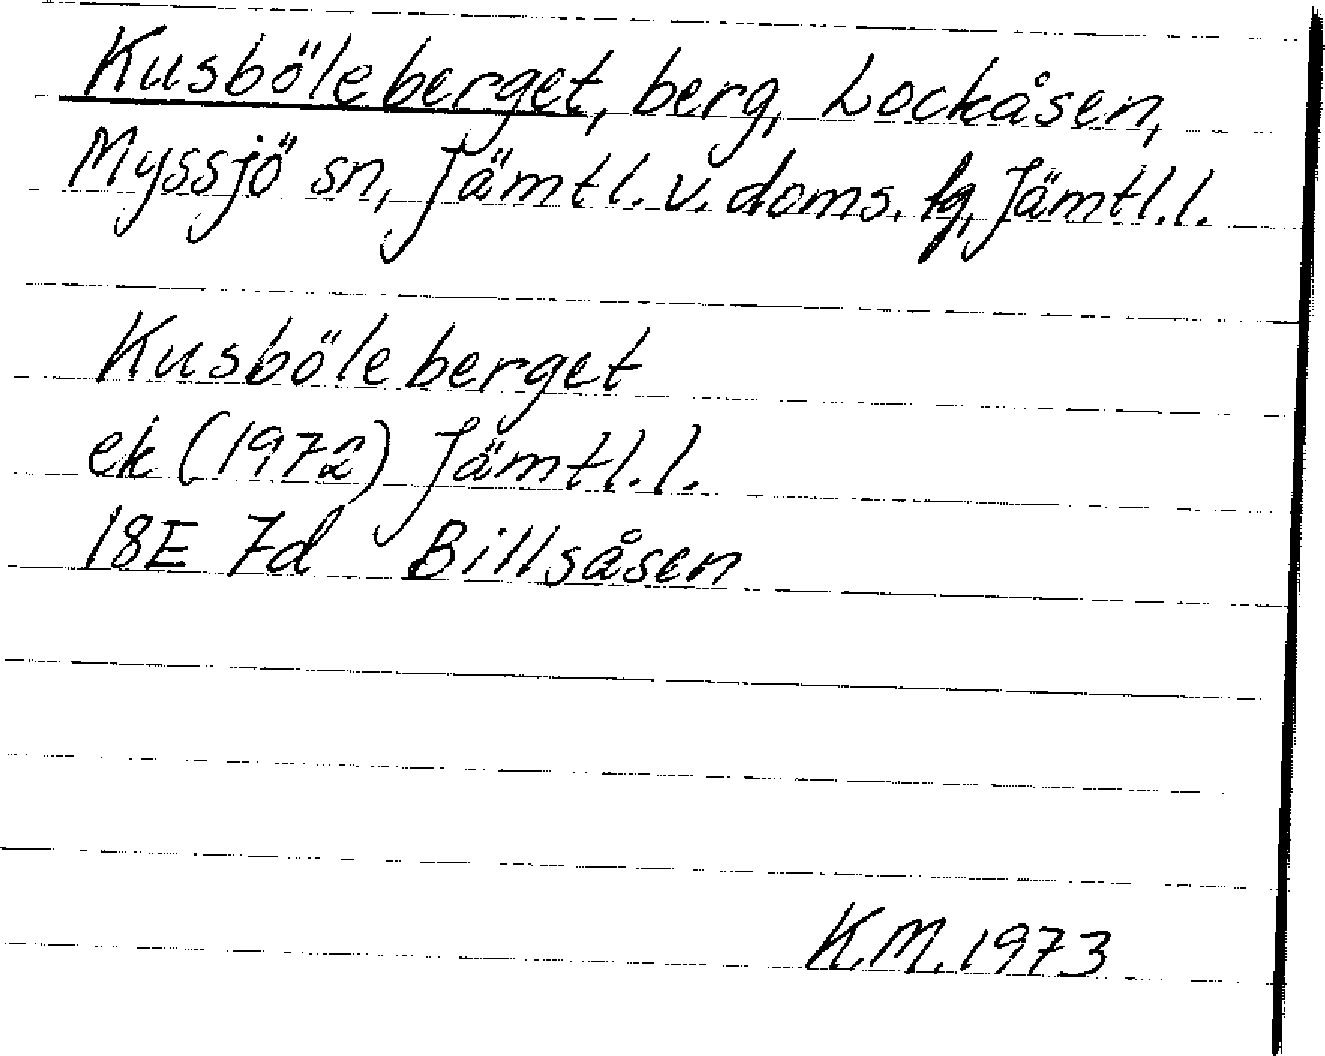 Kusböleberget, berg, Lockåsen,
Myssjö sn, Jämtl. v. doms. fg, Jämtl. l.
Kusböleberget
ek (1972) Jämtl. l.
18E 7d Billsåsen
K.M. 1973